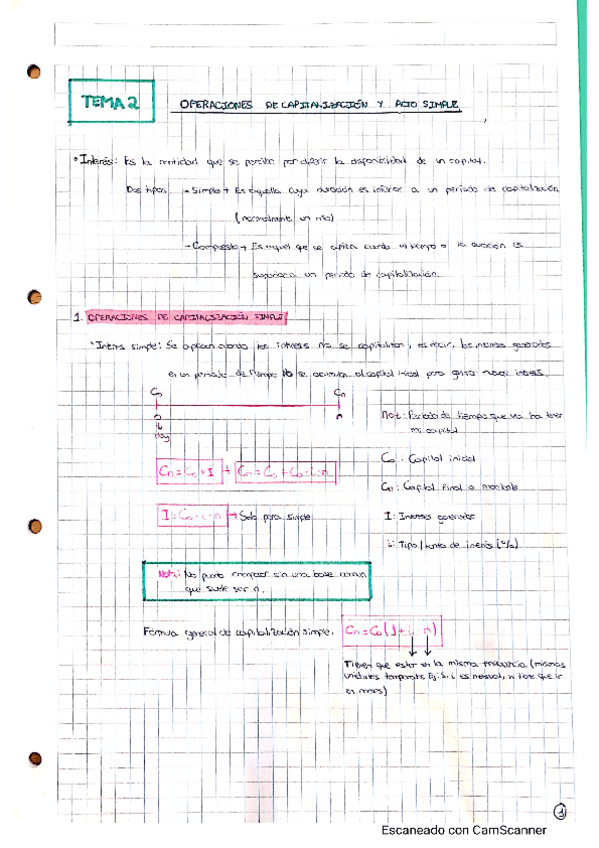 TEMA 2
OPERACIONES DE CAPITALIZACIÓN Y ACTO SIMPLE
• Interés: Es la cantidad que se percibe por diferir la disponibilidad de un capital.
Dos tipos - Simple → Es aquella cuya duración es inferior a un periodo de capitalización
(normalmente un año)
- Compuesto → Es aquel que se aplica cuando el tiempo o la duración es
superior a un periodo de capitalización.
1. OPERACIONES DE CAPITALIZACIÓN SIMPLE
• Interés simple: Se aplican cuando los intereses no se capitalizan, es decir, los intereses generados
en un periodo de tiempo NO se acumulan al capital inicial para generar nuevos intereses.
C₀ Cn
0 n
hoy
n o t: Periodo de tiempo que va ha tener
mi capital
C₀: Capital inicial
Cn: Capital final o montante
I: Intereses generados
i: Tipo / tanto de interés (%)
Cn = C₀ + I → Cn = C₀ + C₀ · i · n
I = C₀ · i · n → Solo para simple
Nota: No puedo comparar sin una base común
que suele ser n.
Fórmula general de capitalización simple. Cn = C₀ (1 + i · n)
Tienen que estar en la misma frecuencia (mismas
unidades temporales Ej: Si i es mensual, n tiene que ir
en meses)
1
Escaneado con CamScanner